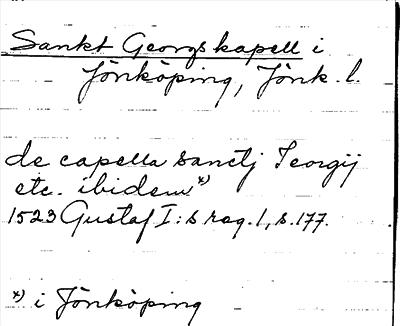 Sankt Georgs kapell i
Jönköping, Jönk. l.
de capella sanctj Georgij
etc. ibidem x)
1523 Gustaf I:s rag. 1, s. 177.
x) i Jönköping